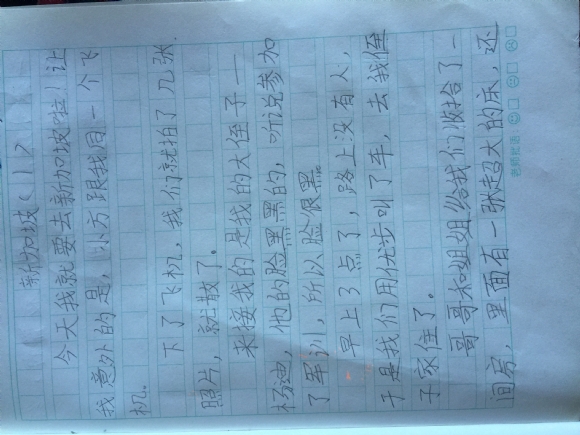 新加坡(1)
今天我就要去新加坡啦!让
我意外的是,小方跟我同一个飞
机。
下了飞机,我们就拍了几张
照片,就散了。
来接我的是我的大侄子一
杨迪,他的脸黑黑的,听说参加
了军训,所以脸很黑。
早上3点了,路上没有人,
于是我们用优步叫了车,去我侄
子家住了。
哥哥和姐姐给我们收拾了一
间房,里面有一张超大的床,还
老师批语